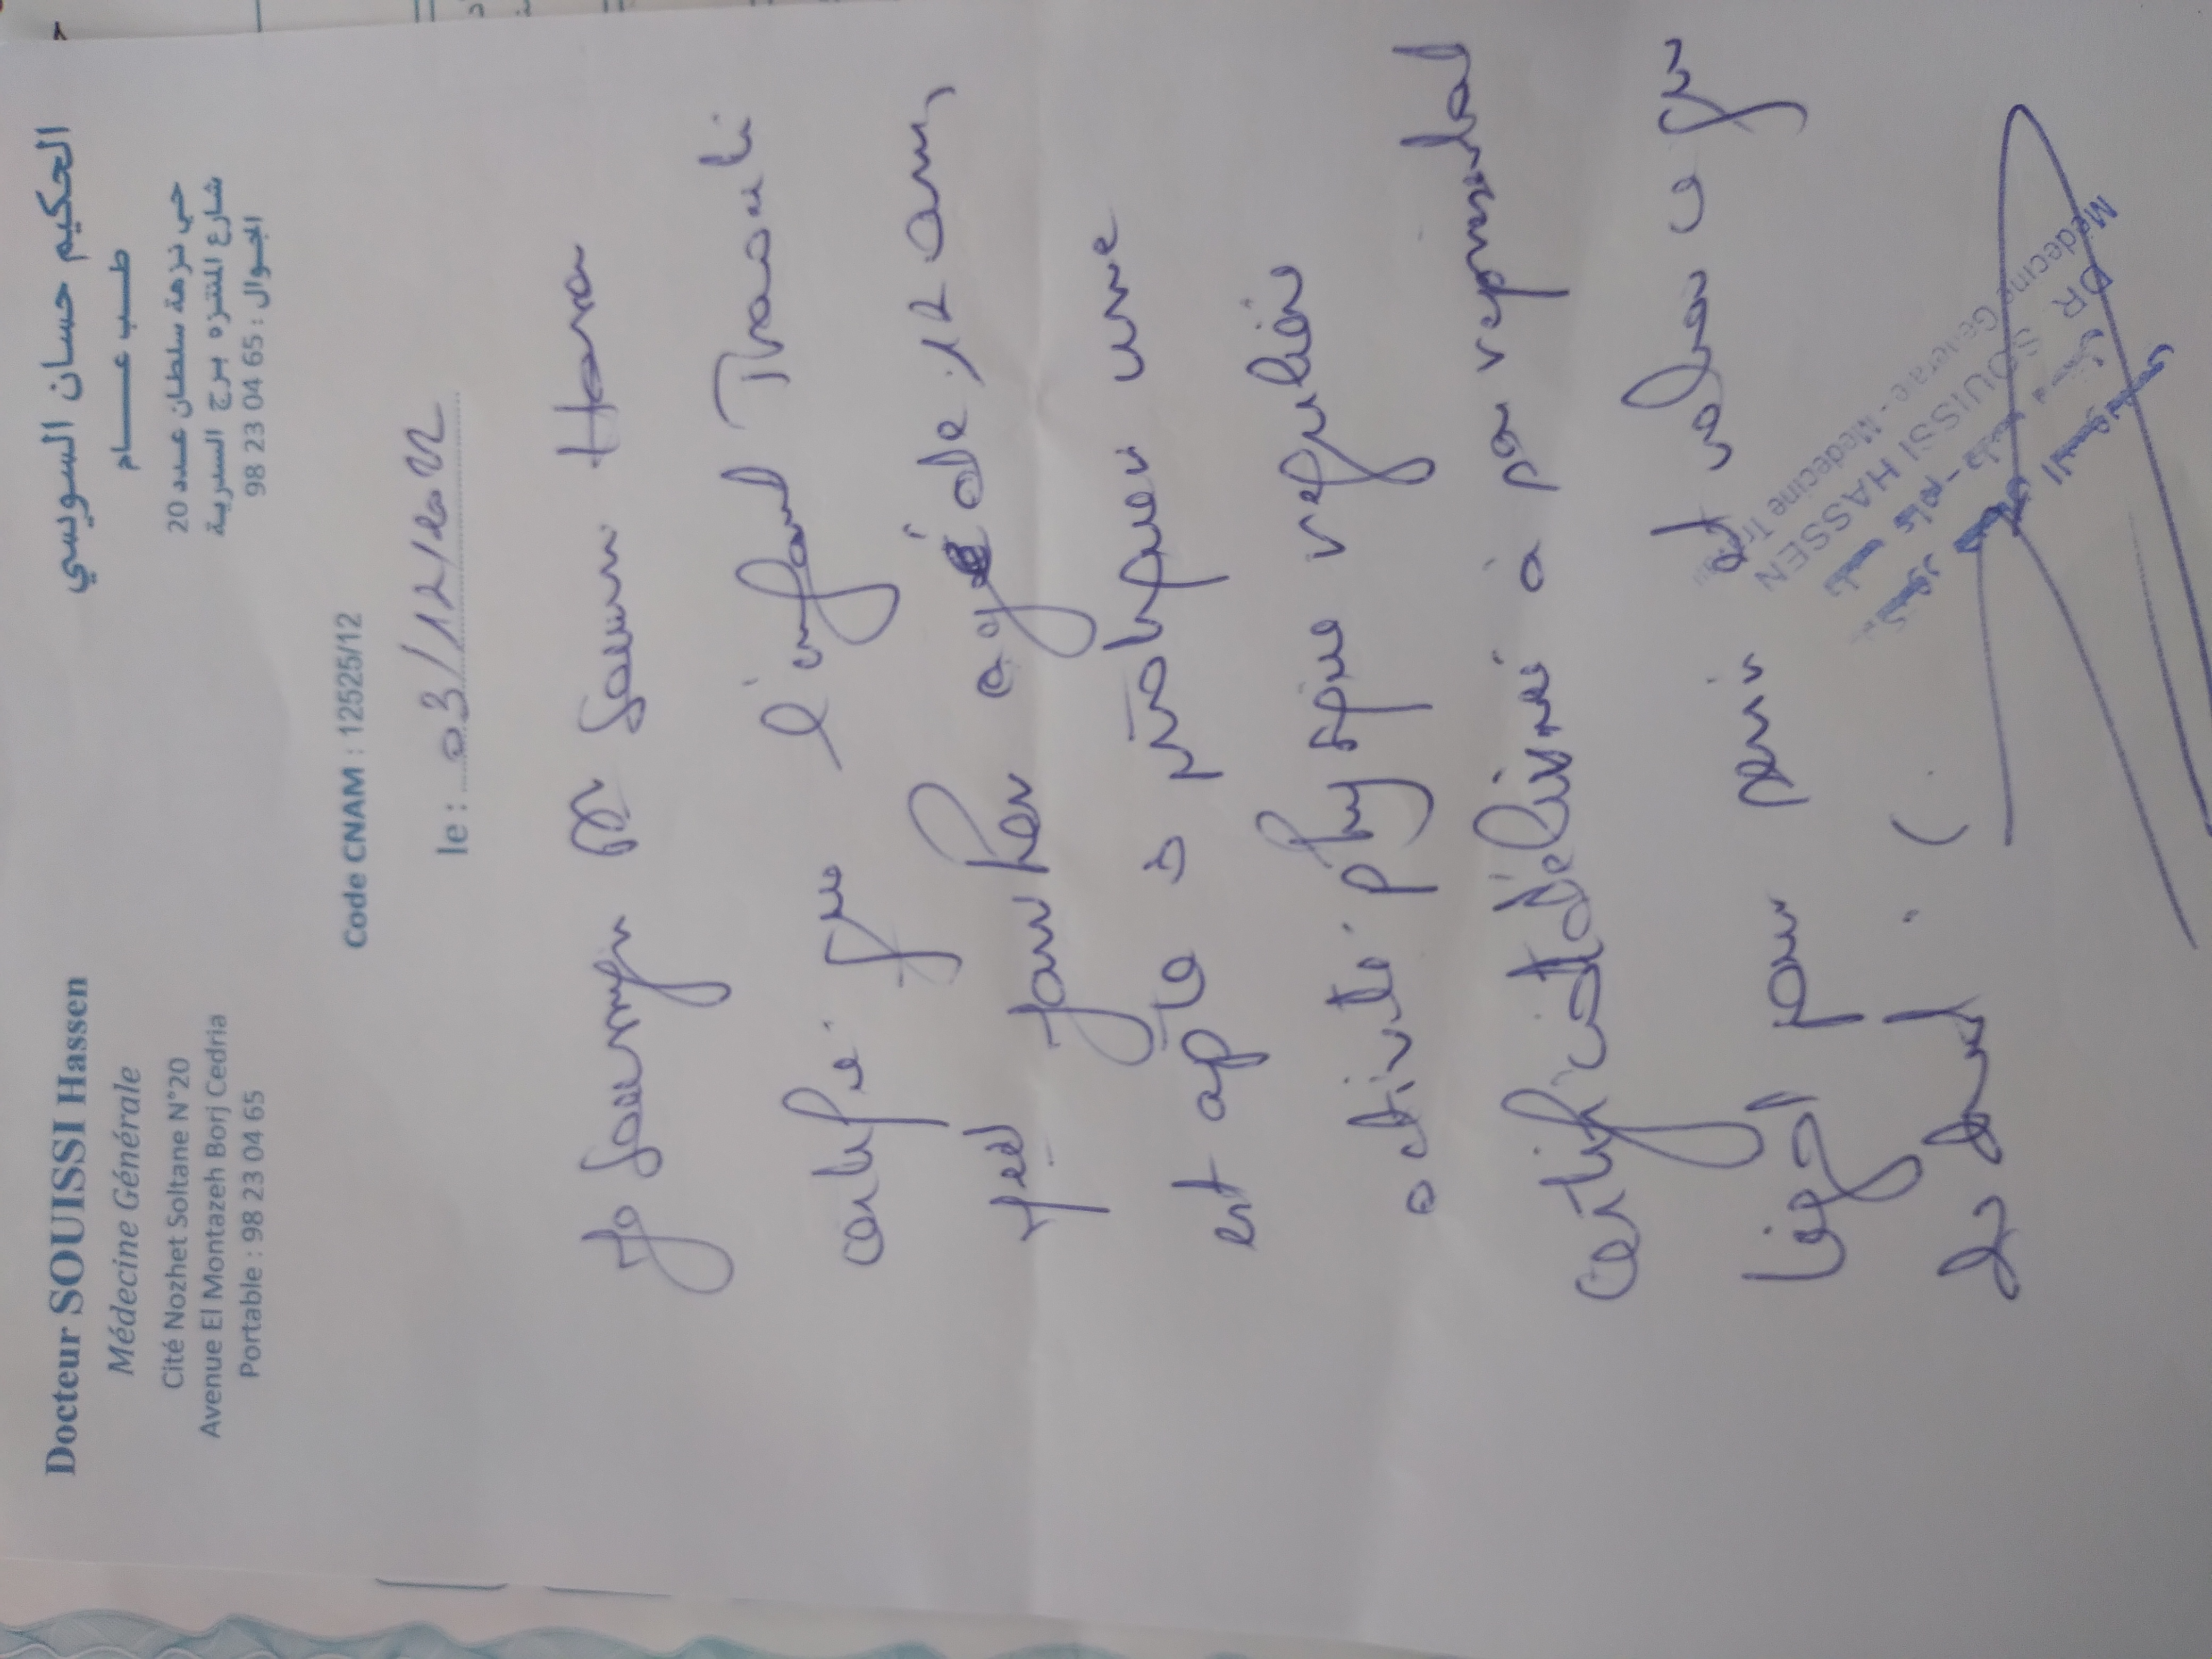 Docteur SOUISSI Hassen
Médecine Générale
Cité Nozhet Soltane N°20
Avenue El Montazeh Borj Cedria
Portable : 98 23 04 65
الحكيم حسان السويسي
طـــب عـــــــام
حي نزهة سلطان عدد 20
شارع المنتزه برج السدرية
الجوال : 98 23 04 65
Code CNAM : 12525/12
le : 03/12/2022
Je soussigné Dr Souissi Hassen
certifie que l'enfant Traouli
âgé de 12 ans,
est apte à pratiquer une
activité physique régulière
certificat délivré à son représentant
légal pour servir et valoir ce que
de droit.
DR SOUISSI HASSEN